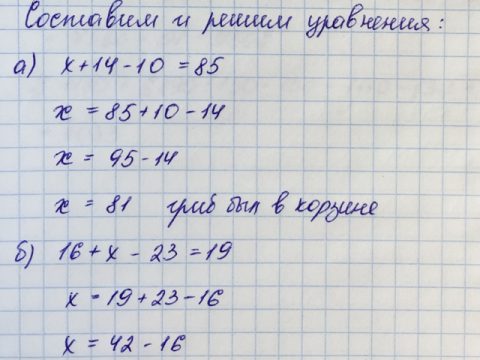 Составим и решим уравнения:
а) х+14-10=85
х = 85+10-14
х = 95-14
х = 81 гриб был в корзине
б) 16+х-23=19
х = 19+23-16
х = 42-16